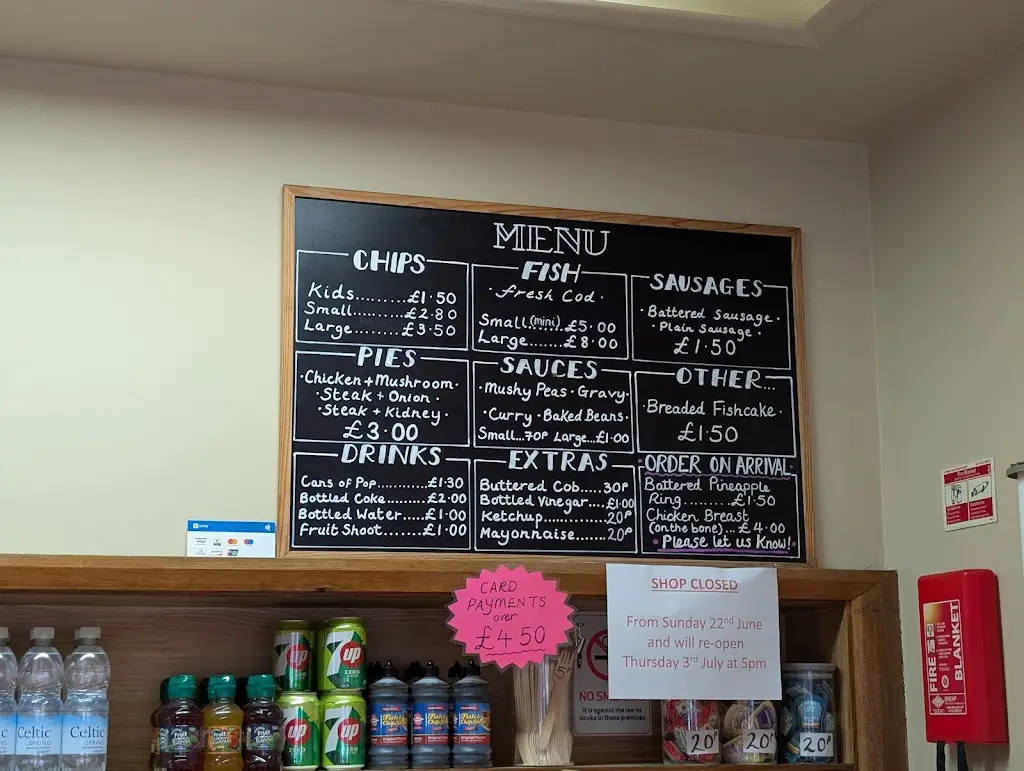 MENU
CHIPS
Kids.........£1·50
Small..........£2·80
Large.........£3·50
FISH
·fresh Cod·
Small (mini)....£5·00
Large.......£8·00
SAUSAGES
·Battered Sausage·
·Plain Sausage·
£1·50
PIES
·Chicken + Mushroom·
·Steak + Onion·
·Steak + Kidney·
£3·00
SAUCES
·Mushy Peas·Gravy·
·Curry·Baked Beans·
Small...70P Large...£1·00
OTHER...
·Breaded Fishcake·
£1·50
DRINKS
Cans of Pop..........£1·30
Bottled Coke........£2·00
Bottled Water.....£1·00
Fruit Shoot.........£1·00
EXTRAS
Buttered Cob.....30P
Bottled Vinegar....£1·00
Ketchup.............20P
Mayonnaise......20P
·ORDER ON ARRIVAL·
Battered Pineapple
Ring.........£1·50
Chicken Breast
(on the bone)...£4·00
·Please let us Know!·
CARD
PAYMENTS
over
£4·50
SHOP CLOSED
From Sunday 22nd June
and will re-open
Thursday 3rd July at 5pm
NO SM
It is against the law to
smoke in these premises
FIRE
BLANKET
Celtic
SPRING
Celtic
SPRING
7up
ZERO
7up
ZERO
7up
ZERO
7up
ZERO
20P
20P
20P